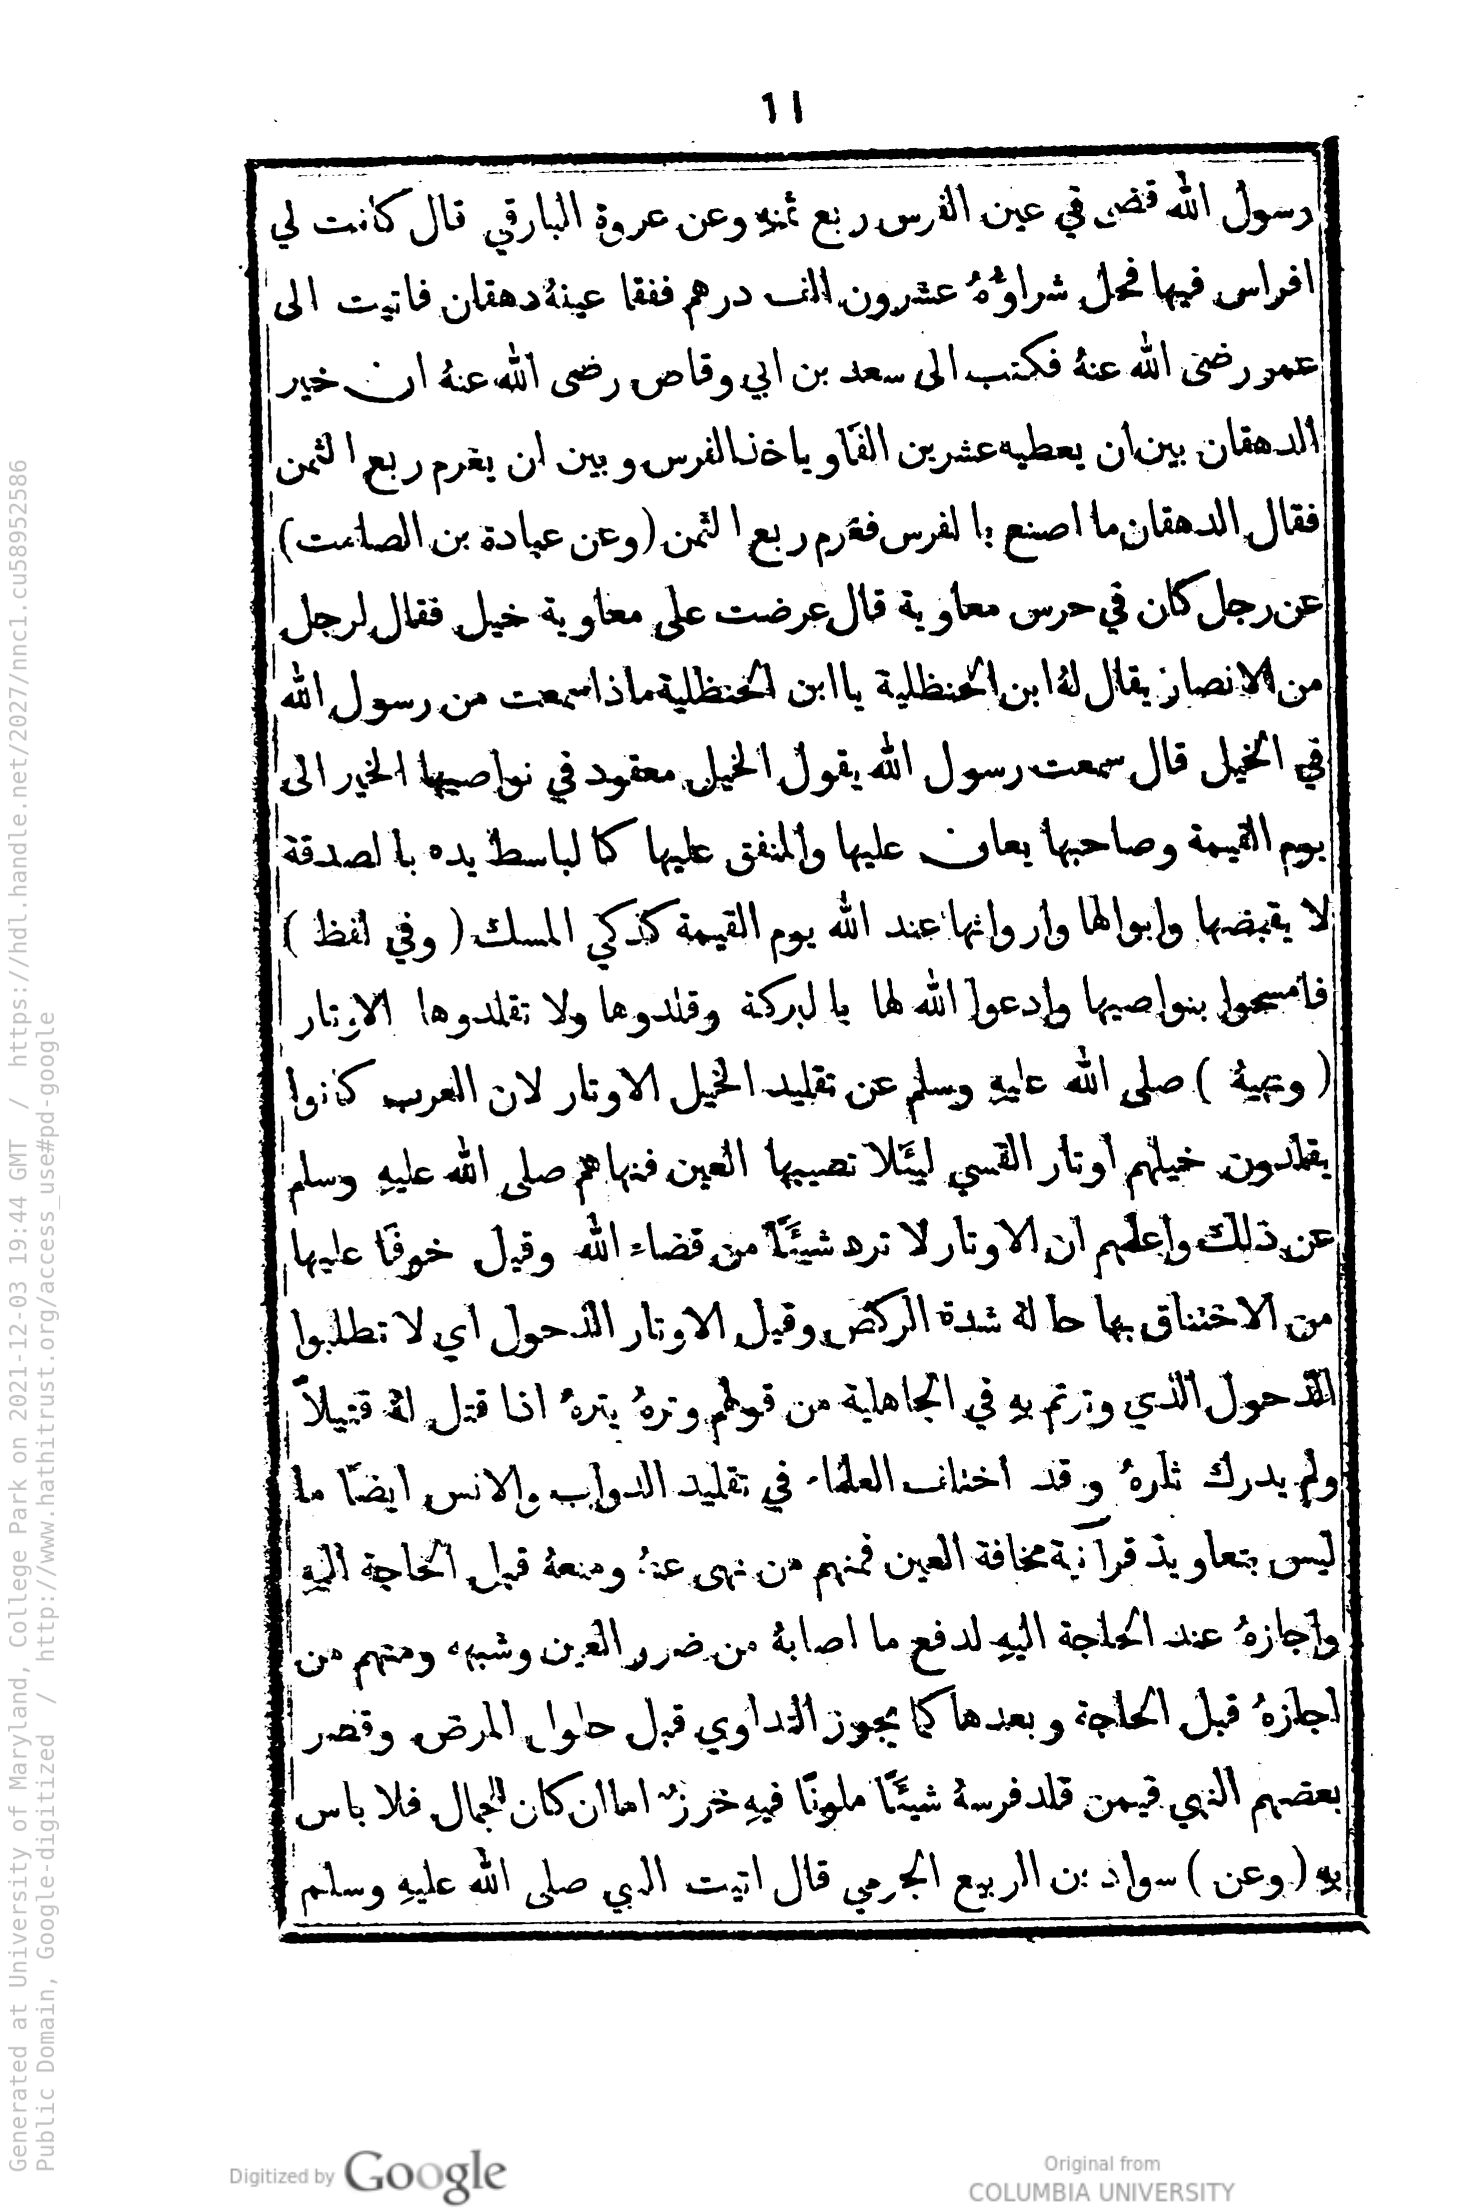 ١١
رسول الله قضى في عين الفرس ربع ثمنهِ وعن عروة البارقي قال كانت لي
افراس فيها فحل شراوُهُ عشرون الف درهم ففقا عينهُ دهقان فاتيت الى
عمر رضى الله عنهُ فكتب الى سعد بن ابي وقاص رضى الله عنهُ ان خير
الدهقان بين ان يعطيه عشرين الفًا وياخذ الفرس وبين ان يغرم ربع الثمن
فقال الدهقان ما اصنع بالفرس فغرم ربع الثمن (وعن عبادة بن الصامت)
عن رجل كان في حرس معاوية قال عرضت على معاوية خيل فقال لرجل
من الانصار يقال لهُ ابن الحنظلية ياابن الحنظلية ماذا سمعت من رسول الله
في الخيل قال سمعت رسول الله يقول الخيل معقود في نواصيها الخير الى
يوم القيمة وصاحبها يعان عليها والمنفق عليها كالباسط يده بالصدقة
لا يقبضها وابوالها وارواثها عند الله يوم القيمة كذكي المسك (وفي لفظ)
فامسحوا بنواصيها وادعوا الله لها يالبركة وقلدوها ولا تقلدوها الاوتار
(ونهيهُ) صلى الله عليهِ وسلم عن تقليد الخيل الاوتار لان العرب كانوا
يقلدون خيلهم اوتار القسي ليئَلا تصيبها العين فنهاهم صلى الله عليهِ وسلم
عن ذلك واعلمهم ان الاوتار لا ترد شيئًا من قضاء الله وقيل خوفًا عليها
من الاختناق بها حالة شدة الركض وقيل الاوتار الذحول اي لا تطلبوا
الذحول الذي وترتم بهِ في الجاهلية من قولهم وترهُ يترهُ اذا قتل لهُ قتيلاً
ولم يدرك ثارهُ وقد اختلف العلماء في تقليد الدواب والانس ايضًا ما
ليس بتعاويذ قرآنية مخافة العين فمنهم من نهى عنهُ ومنعهُ قبل الحاجة اليهِ
واجازهُ عند الحاجة اليهِ لدفع ما اصابهُ من ضرر العين وشبهه ومنهم من
اجازهُ قبل الحاجة وبعدها كما يجوز التداوي قبل حلول المرض وقصر
بعضهم النهي فيمن قلد فرسهُ شيئًا ملونًا فيهِ خرزٌ اما ان كان للجمال فلا باس
بهِ (وعن) سواد بن الربيع الجرمي قال اتيت النبي صلى الله عليهِ وسلم
Generated at University of Maryland, College Park on 2021-12-03 19:44 GMT / https://hdl.handle.net/2027/nnc1.cu58952586
Public Domain, Google-digitized / http://www.hathitrust.org/access_use#pd-google
Digitized by Google
Original from
COLUMBIA UNIVERSITY